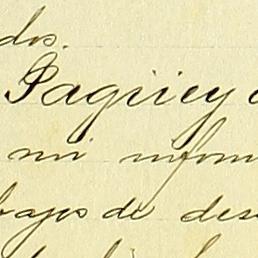 dos.
Sagüey
mi inform
bajos de des